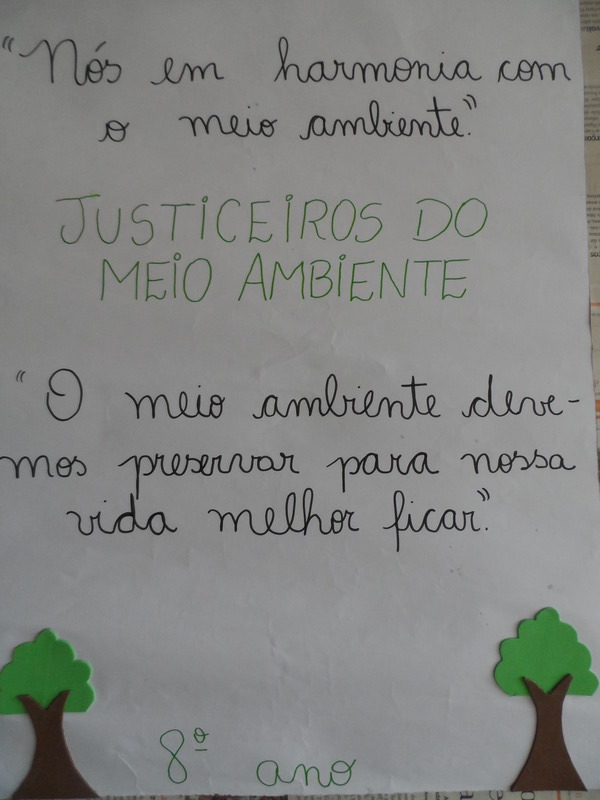 "Nós em harmonia com
o meio ambiente."
JUSTICEIROS DO
MEIO AMBIENTE
"O meio ambiente deve-
mos preservar para nossa
vida melhor ficar."
8º ano